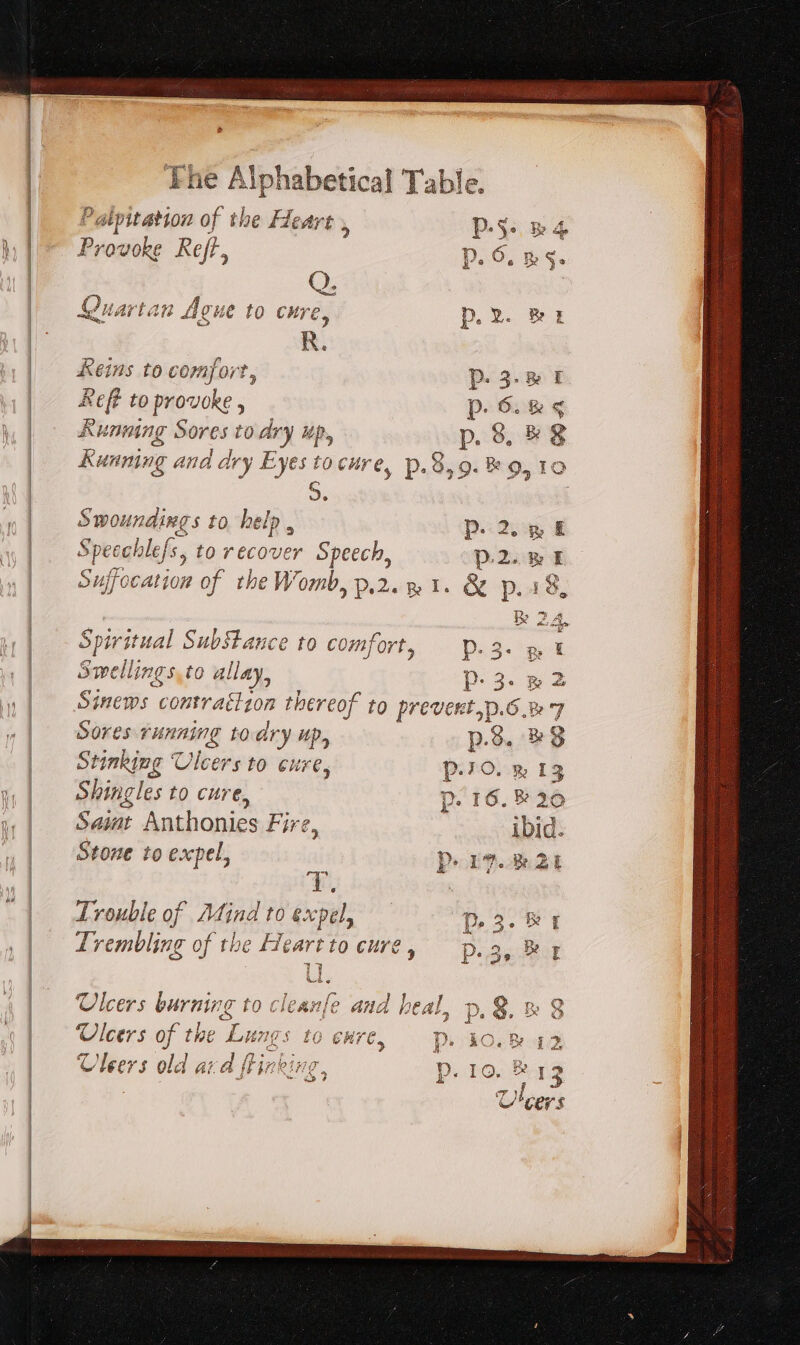 The Alphabetical Table.
Palpitation of the Heart, p.5. ℞ 4
Provoke Reſt, p. 6. ℞ 5.
Q.
Quartan Ague to cure, p. 2. ℞ 1
R.
Reins to comfort, p. 3. ℞ 1
Reſt to provoke, p. 6. ℞ 5
Running Sores to dry up, p. 8, ℞ 8
Running and dry Eyes to cure, p.8,9. ℞ 9, 10
S.
Swoundings to help, p. 2, ℞ 1
Speechleſs, to recover Speech, p.2. ℞ 1
Suffocation of the Womb, p.2. ℞ 1. & p.18.
℞ 24.
Spiritual Subſtance to comfort, p. 3. ℞ 1
Swellings to allay, p. 3. ℞ 2
Sinews contraction thereof to prevent, p.6. ℞ 7
Sores running to dry up, p.8. ℞ 8
Stinking Ulcers to cure, p.10. ℞ 13
Shingles to cure, p. 16. ℞ 20
Saint Anthonies Fire, ibid.
Stone to expel, p. 17. ℞ 21
T.
Trouble of Mind to expel, p. 3. ℞ 1
Trembling of the Heart to cure, p.3, ℞ 1
U.
Ulcers burning to cleanſe and heal, p. 8. ℞ 8
Ulcers of the Lungs to cure, p. 10. ℞ 12
Ulcers old and ſtinking, p. 10. ℞ 13
Ulcers